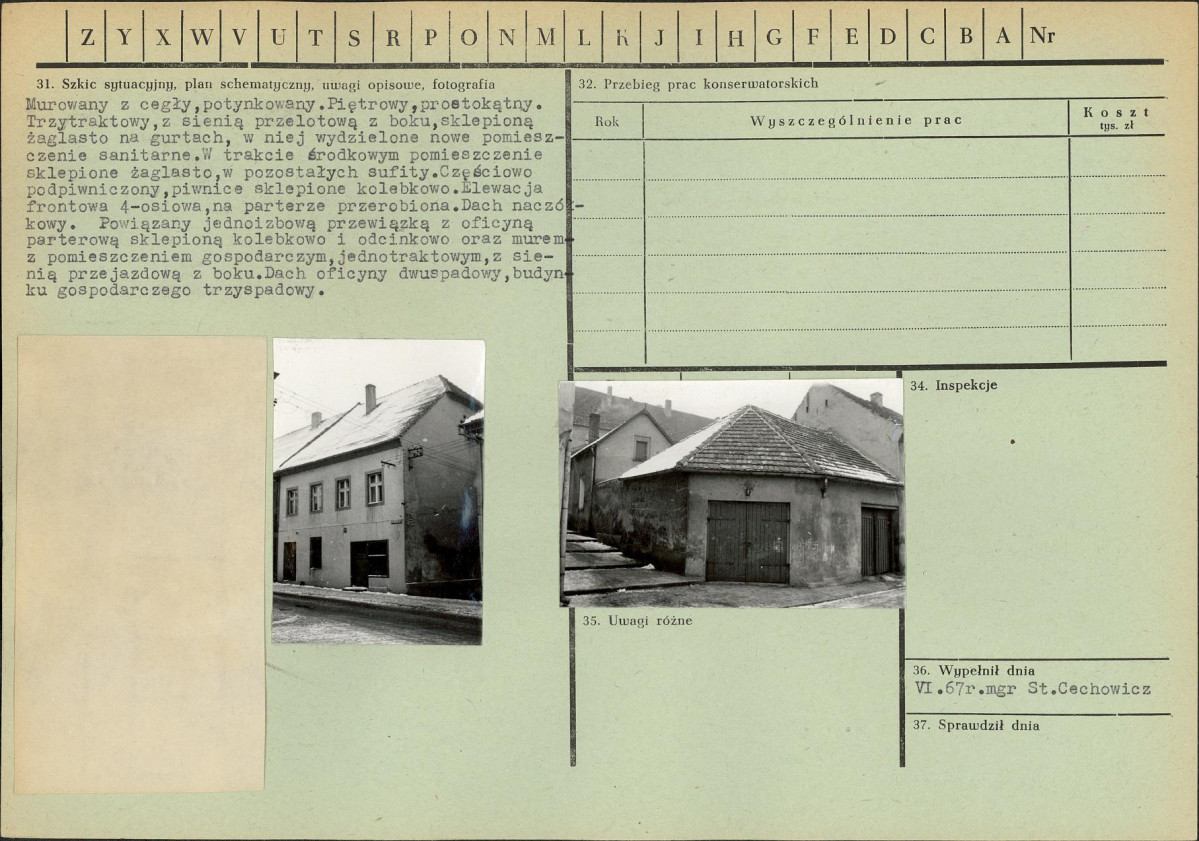 Z Y X W V U T S R P O N M L K J I H G F E D C B A Nr
31. Szkic sytuacyjny, plan schematyczny, uwagi opisowe, fotografia
Murowany z cegły,potynkowany.Piętrowy,prostokątny.
Trzytraktowy,z sienią przelotową z boku,sklepioną
żaglasto na gurtach, w niej wydzielone nowe pomiesz-
czenie sanitarne.W trakcie środkowym pomieszczenie
sklepione żaglasto,w pozostałych sufity.Częściowo
podpiwniczony,piwnice sklepione kolebkowo.Elewacja
frontowa 4-osiowa,na parterze przerobiona.Dach naczół-
kowy. Powiązany jednoizbową przewiązką z oficyną
parterową sklepioną kolebkowo i odcinkowo oraz murem-
z pomieszczeniem gospodarczym,jednotraktowym,z sie-
nią przejazdową z boku.Dach oficyny dwuspadowy,budyn-
ku gospodarczego trzyspadowy.
32. Przebieg prac konserwatorskich
Rok
Wyszczególnienie prac
Koszt
tys. zł
34. Inspekcje
35. Uwagi różne
36. Wypełnił dnia
VI.67r.mgr St.Cechowicz
37. Sprawdził dnia